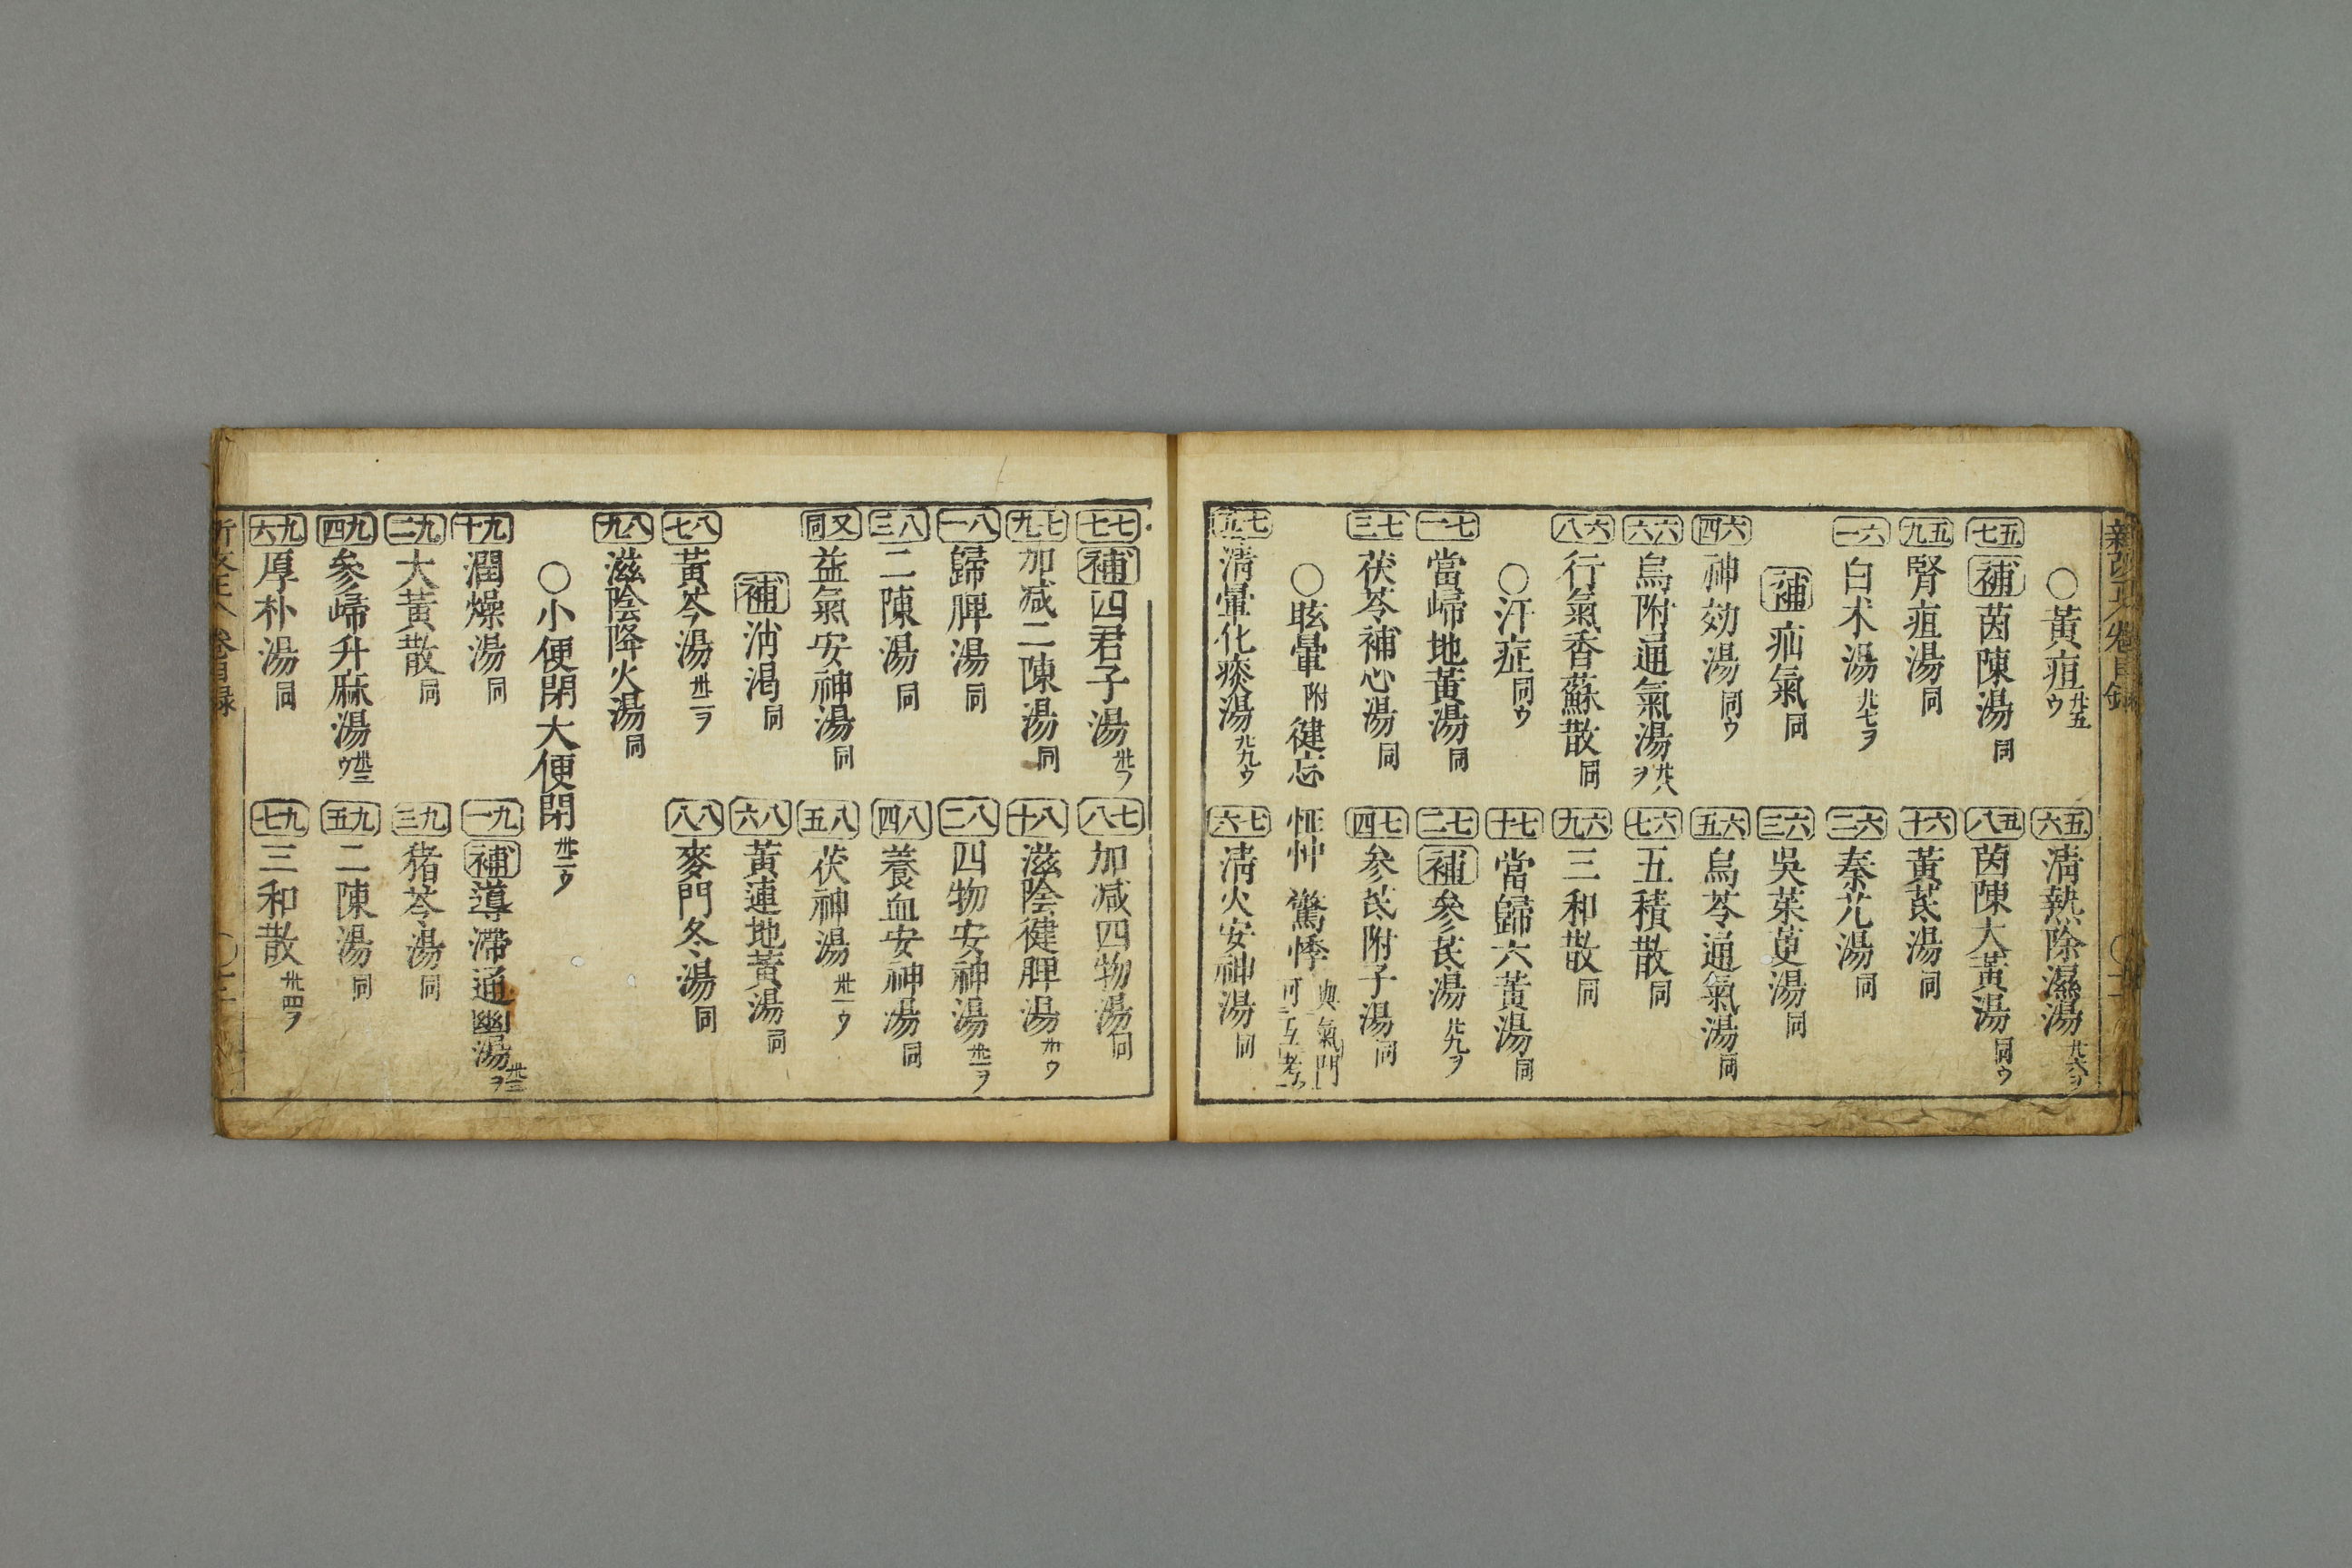 ○黄疸 廿五ウ　五六 淸熱除濕湯 廿六ヲ
五七 補 茵陳湯 同　五八 茵陳大黄湯 同ウ
五九 腎疸湯 同　六十 黄芪湯 同
六一 白术湯 廿七ヲ　六二 秦艽湯 同
補 疝氣 同　六三 吳茱萸湯 同
六四 神効湯 同ウ　六五 烏苓通氣湯 同
六六 烏附通氣湯 廿八ヲ　六七 五積散 同
六八 行氣香蘇散 同　六九 三和散 同
○汗症 同ウ　七十 當歸六黄湯 同
七一 當歸地黄湯 同　七二 補 參芪湯 廿九ヲ
七三 茯苓補心湯 同　七四 參芪附子湯 同
○眩暈 附 健忘 怔忡 驚悸 與氣門可互考
七五 淸暈化痰湯 廿九ウ　七六 淸火安神湯 同
七七 補 四君子湯　七八 加減四物湯 同
七九 加減二陳湯 同　八十 滋陰健脾湯 卅ウ
八一 歸脾湯 同　八二 四物安神湯 卅一ヲ
八三 二陳湯 同　八四 養血安神湯 同
又同 益氣安神湯 同　八五 茯神湯 卅一ウ
補 消渇 同　八六 黄連地黄湯 同
八七 黄芩湯 卅二ヲ　八八 麥門冬湯 同
八九 滋陰降火湯 同
○小便閉大便閉 卅二ウ
九十 潤燥湯 同　九一 補 導滯通幽湯 卅三ヲ
九二 大黄散 同　九三 猪苓湯 同
九四 參歸升麻湯 卅三ウ　九五 二陳湯 同
九六 厚朴湯 同　九七 三和散 卅四ヲ